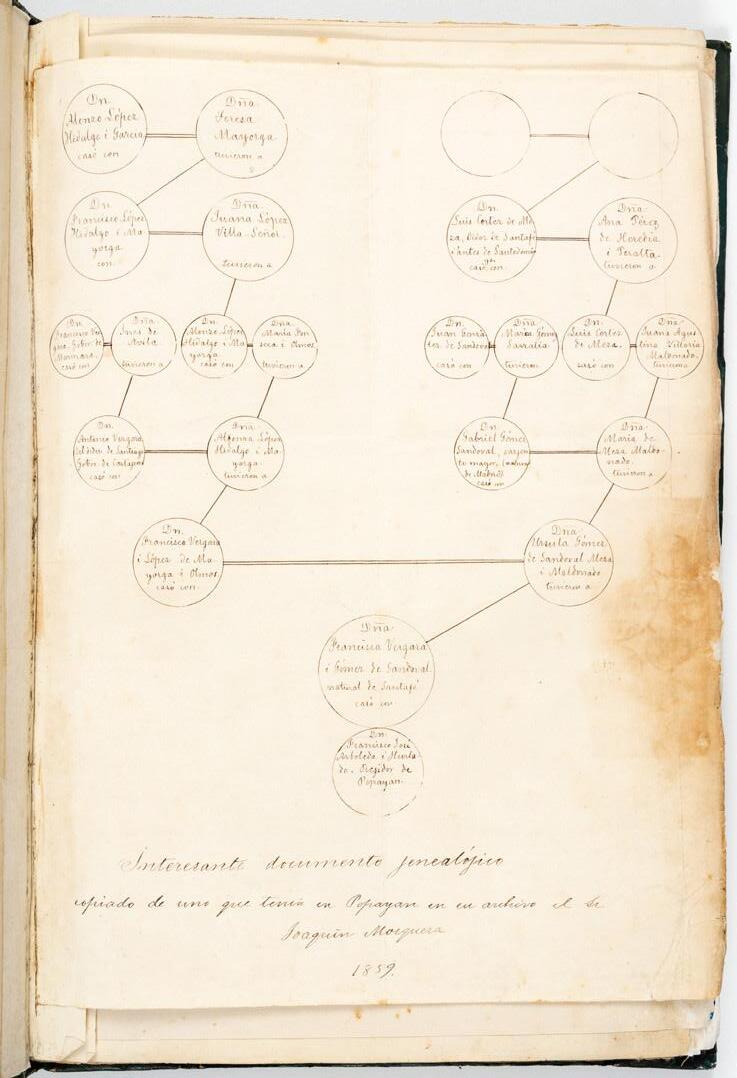 Dn.
Alonzo López
Hidalgo i García
casó con
Dña
Teresa
Mayorga
tuvieron a
Dn.
Francisco López
Hidalgo i Ma-
yorga
con
Dña.
Juana López
Villa-Señor.
tuvieron a
Dn.
Luis Cortez de Me-
za, Oidor de Santafé
i antes de Santodomingo
casó con
Dña.
Ana Pérez
de Heredia
i Peralta.
tuvieron a
Dn.
Francisco Ver-
gara, Gobor. de
casó con
Dña
Ines de
Avila
tuvieron a
Dn.
Alonzo López
Hidalgo i Ma-
yorga
casó con
Dña.
María Pon-
i Olmos
tuvieron a
Dn.
Juan Gonzá-
lez de Sandoval
casó con
Dña
María Gómez
Sarralia
tuvieron
Dn.
Luis Cortez
de Meza.
casó con
Dña.
Juana Agus-
tina Villoria
Maldonado.
tuvieron a
Dn.
Antonio Vergara
de Santiago
Gobor. de Cartagena
casó con
Dña
Alfonsa López
Hidalgo i Ma-
yorga
tuvieron a
Dn.
Gabriel Gómez
Sandoval, sarjen-
to mayor, (natural
de Madrid)
casó con
Dña
María de
Mesa Maldo-
nado.
tuvieron a
Dn.
Francisco Vergara
i López de Ma-
yorga i Olmos
casó con
Dña
Ursula Gómez
de Sandoval Mesa
i Maldonado
tuvieron a
Dña
Francisca Vergara
i Gómez de Sandoval
natural de Santafé
casó con
Dn.
Francisco José
Arboleda i Hurta-
do. Rejidor de
Popayan
Interesante documento jenealójico
copiado de uno que tenia en Popayan en su archivo el Sr
Joaquin Mosquera
1859.